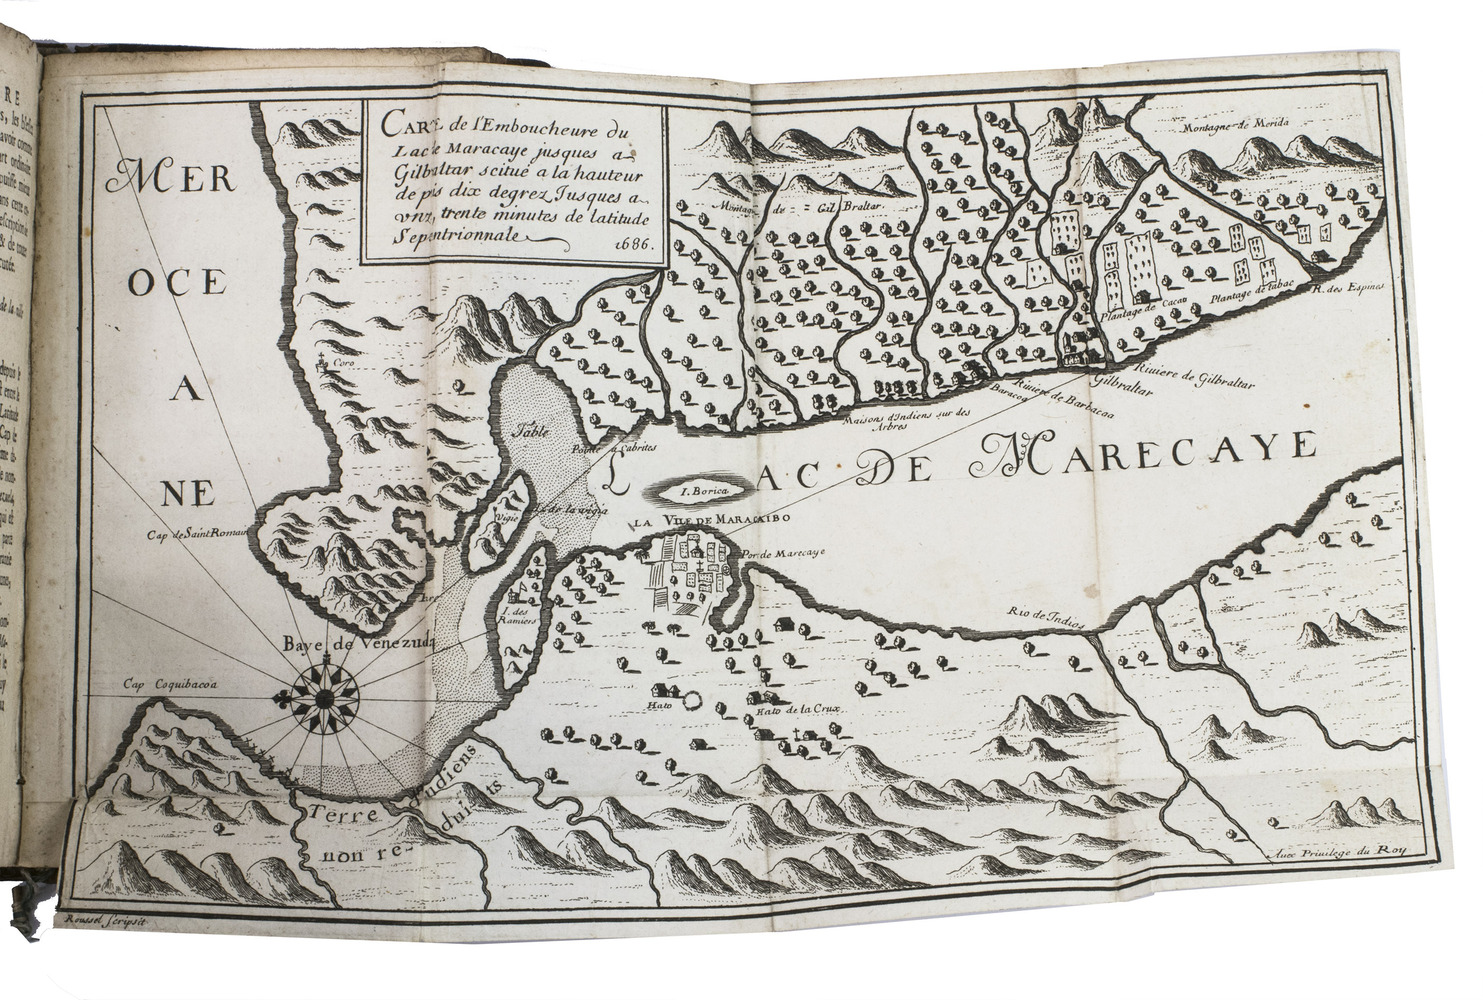 RE
CARTE de l'Emboucheure du
Lac de Maracaye jusques a
Gilbraltar scitué a la hauteur
de puis dix degrez Jusques a
vnze trente minutes de latitude
Septentrionnale 1686.
MER
OCE
A
NE
Montagne de Merida
Montagne de Gil Braltar
Coro
R. des Espines
Plantage de tabac
Plantage de Cacao
Riuiere de Gilbraltar
Gilbraltar
Riuiere de Barbacoa
Baracoa
Maisons d'Indiens sur des
Arbres
Table
Pointe a Cabrites
LAC DE MARECAYE
I. Borica
Vigie
I. de la vigia
LA VILE DE MARACAIBO
Por. de Marecaye
Cap de Saint Romain
I. des
Ramiers
Rio de Indios
Baye de Venezuela
Cap Coquibacoa
Hato
Hato de la Crux
Terre
non re-
duits
Indiens
Auec Priuilege du Roy
Roussel scripsit